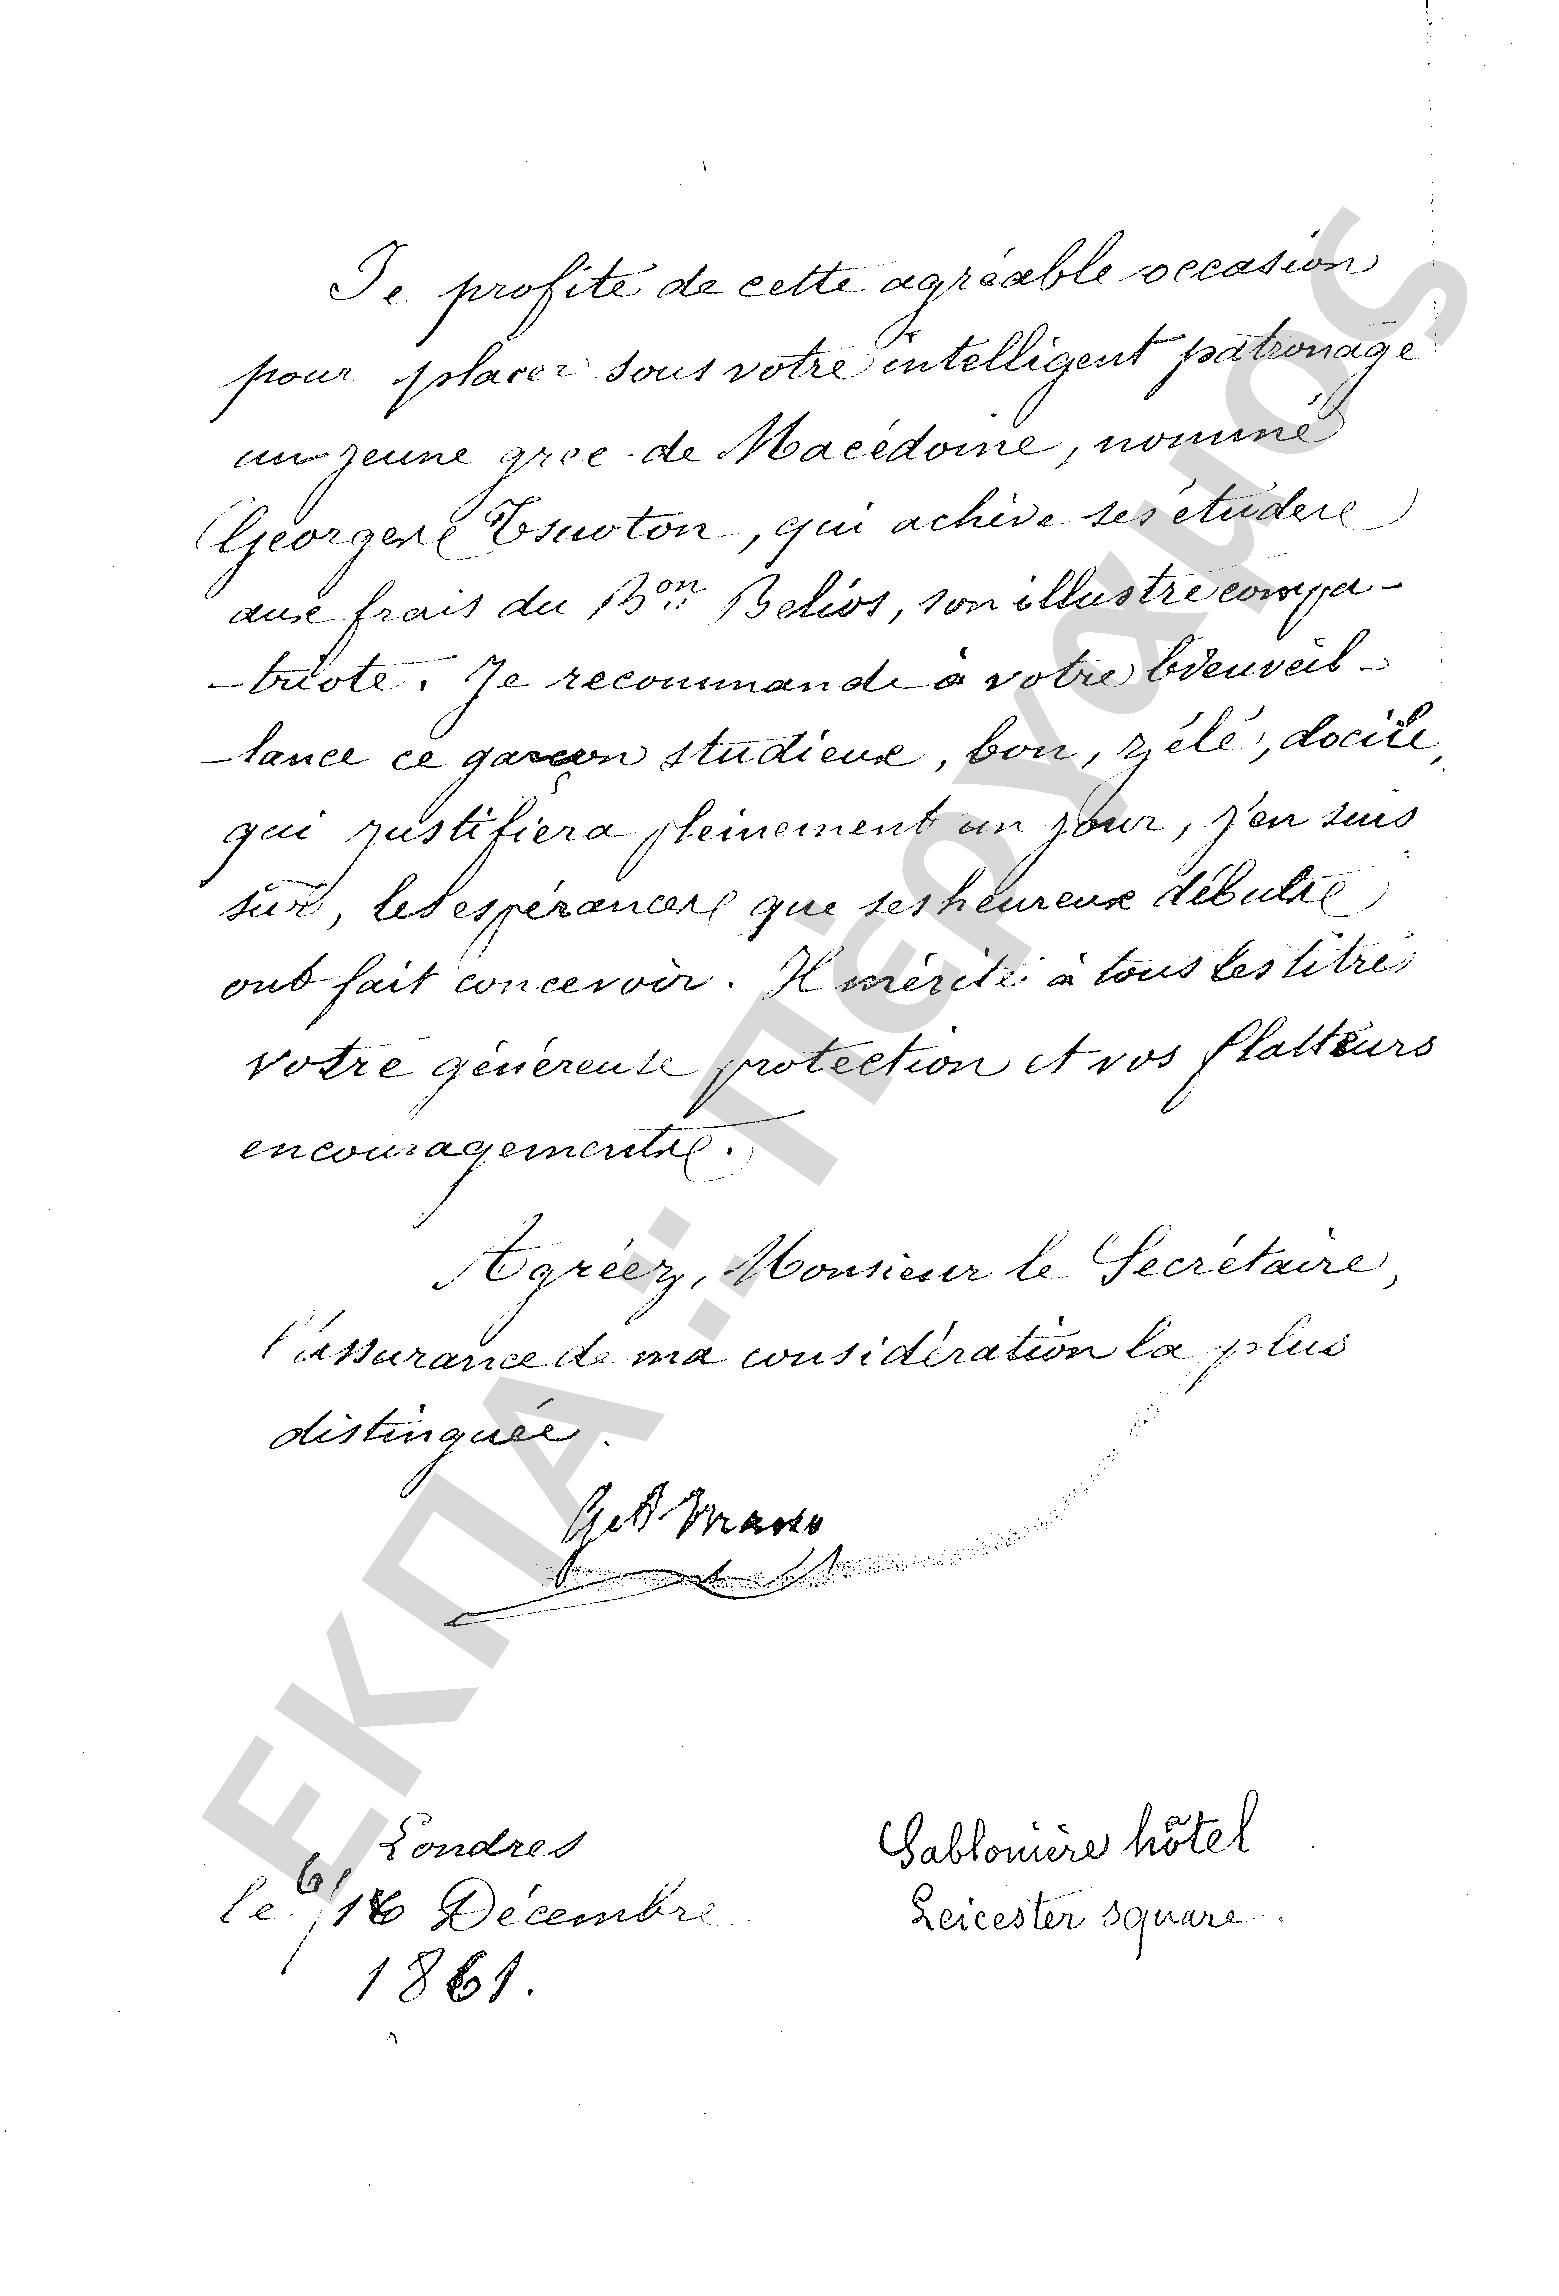 Je profite de cette agréable occasion
pour placer sous votre intelligent patronage
un jeune grec de Macédoine, nommé
Georges, qui achève ses études
aux frais du Bon Belios, son illustre compa-
-triote. Je recommande à votre bienveil-
-lance ce garçon studieux, bon, zélé, docile,
qui justifiera pleinement un jour, j'en suis
sûr, les espérances que ses heureux débuts
ont fait concevoir. Il mérite à tous les titres
votre généreuse protection et vos flatteurs
encouragements.
Agréez, Monsieur le Secrétaire,
l'assurance de ma considération la plus
distinguée.
Londres
le 6/18 Décembre
1861.
Sablonière hôtel
Leicester square.
ΕΚΠΑ: Πέργαμος